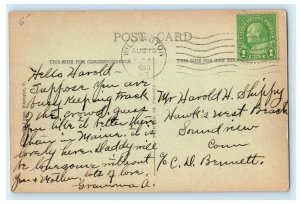 POST CARD
THIS SIDE FOR CORRESPONDENCE
THIS SIDE FOR THE
AUG 13
Hello Harold -
Suppose you are
busy keeping track
of the crowd. I guess
you like it better there
than in Maine. it is
lovely here. Daddy will
be lonesome without
you & Mother. lots of love,
Grandma A.
Mr Harold H. Shippy
Hawk's nest Beach
Sound view
Conn
c/o C. D. Bennett.
1
1